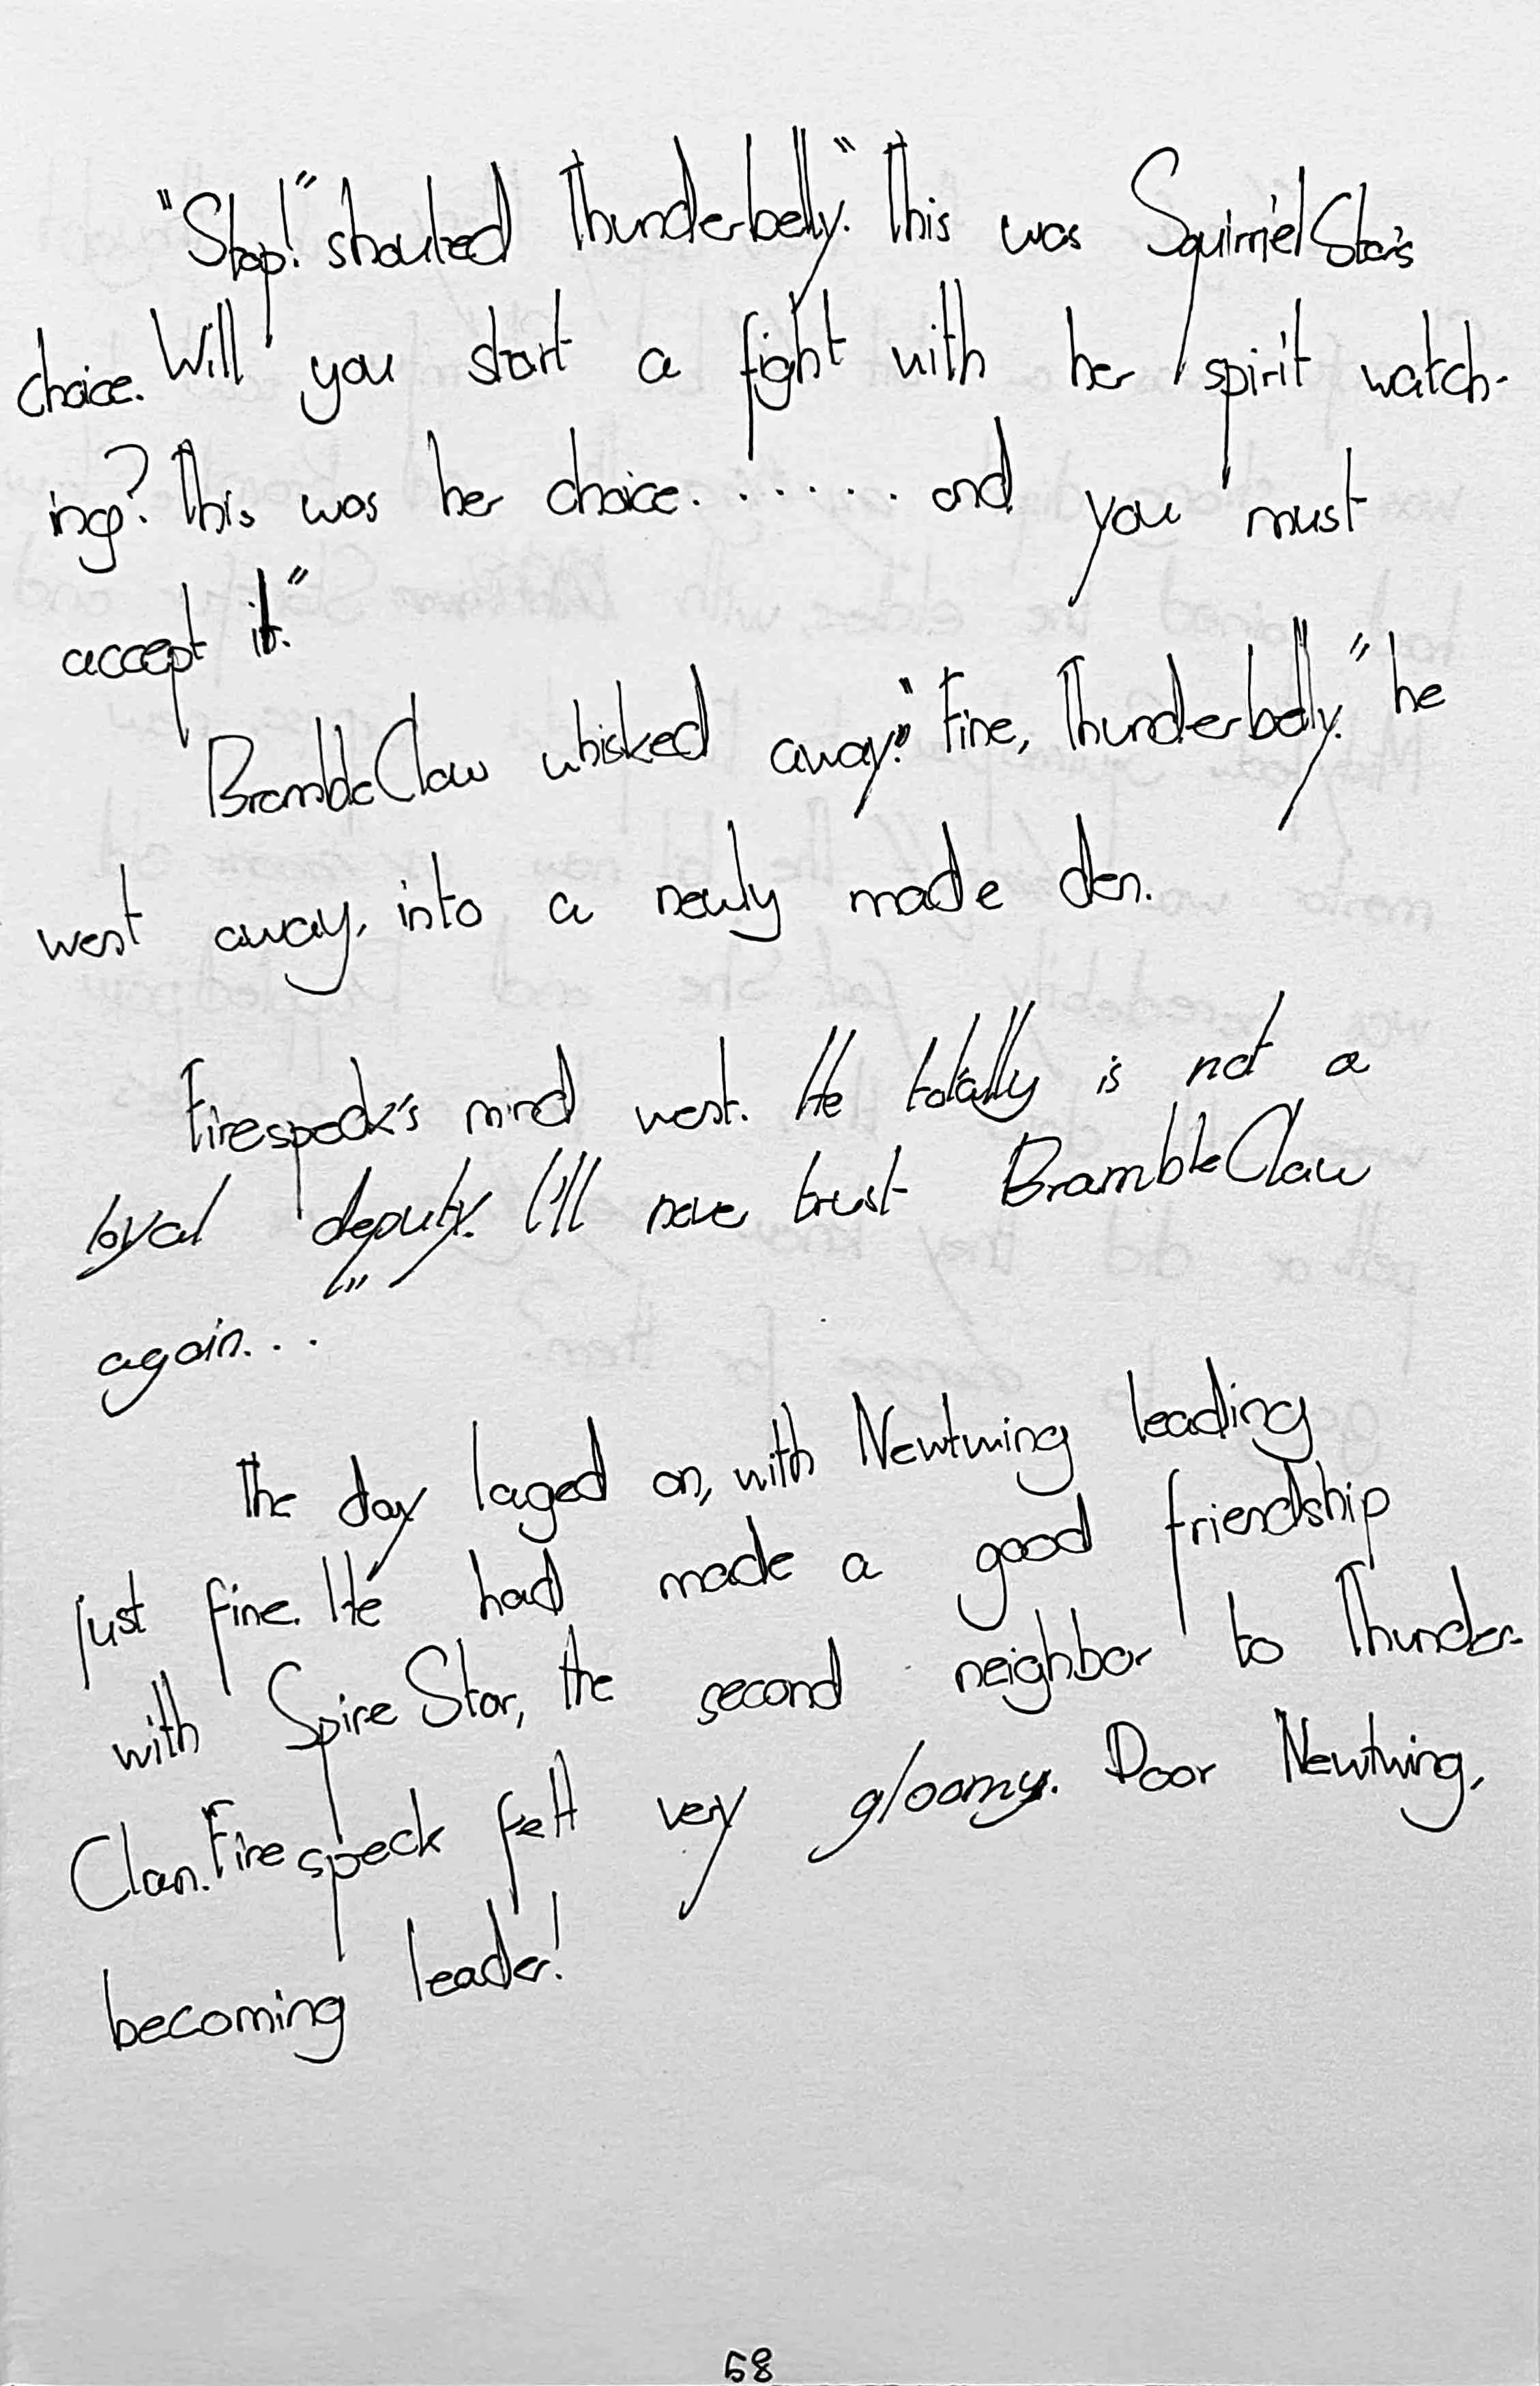 "Stop!" shouted Thunderbelly. "This was SquirrelStar's
choice. Will you start a fight with her spirit watch-
ing? This was her choice. ...... and you must
accept it."
BrambleClaw whisked away. "Fine, Thunderbelly." he
went away, into a newly made den.
Firespeck's mind went. He totally is not a
loyal deputy. I'll never trust BrambleClaw
again...
The day laged on, with Newtwing leading
just fine. He had made a good friendship
with SpireStar, the second neighbor to Thunder-
Clan. Firespeck felt very gloomy. Poor Newtwing,
becoming leader!
58